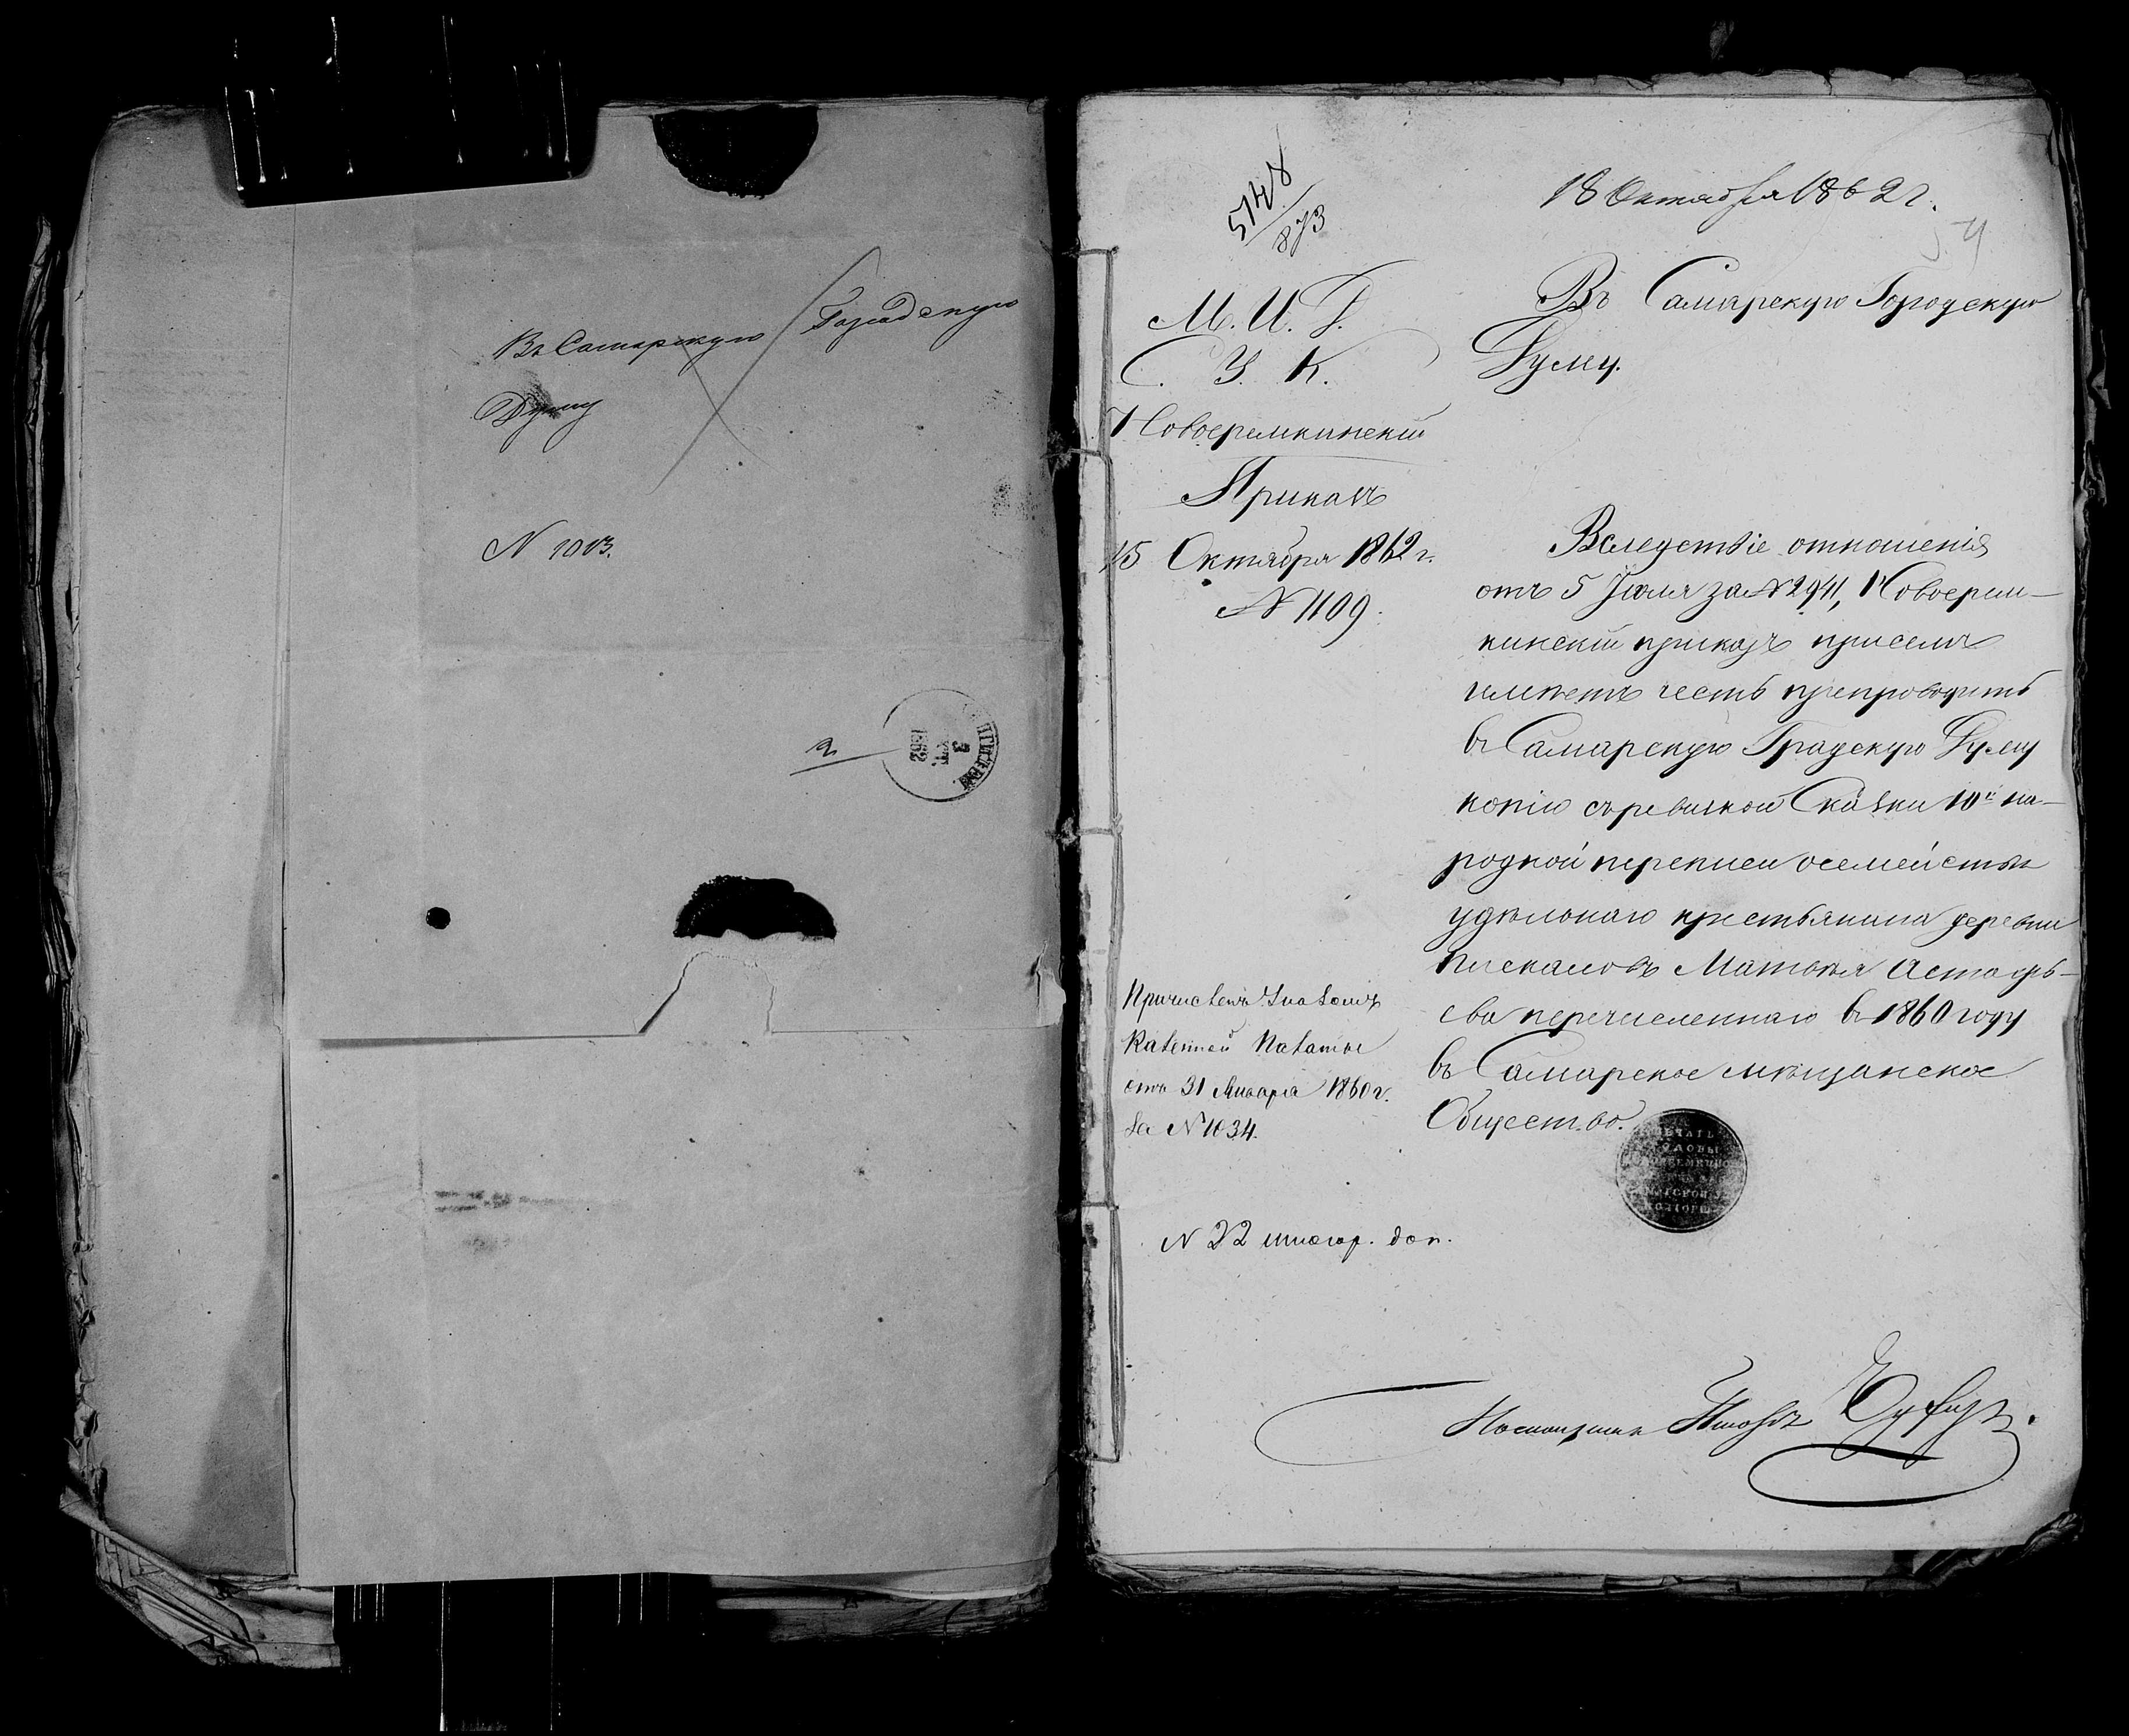 Въ Самарскую Городскую
Думу
N 1013.
2
1862
5148
873
18 Октября 1862 г.
54
М. И. Д.
С. У. К.
Новоеремкинскій
Приказъ
15 Октября 1862 г.
N 1109.
Въ Самарскую Городскую
Думу.
Вследствіе отношенія
отъ 5 Іюля за N 2941, Новоерем-
кинскій приказъ присемъ
имѣетъ честь препроводить
въ Самарскую Градскую Думу
копію съ ревизкой Сказки 10й на-
родной переписи о семействѣ
удѣльнаго крестьянина деревни
Пискаловъ Матвѣя Астафь-
ева перечисленнаго въ 1860 году
въ Самарское мѣщанское
Общество.
Причисленъ Указомъ
Казенной Палаты
отъ 31 Января 1860 г.
за N 1034.
N 22 иногор. доп.
ПЕЧАТЬ
ГОЛОВЫ
КОНТОРЫ